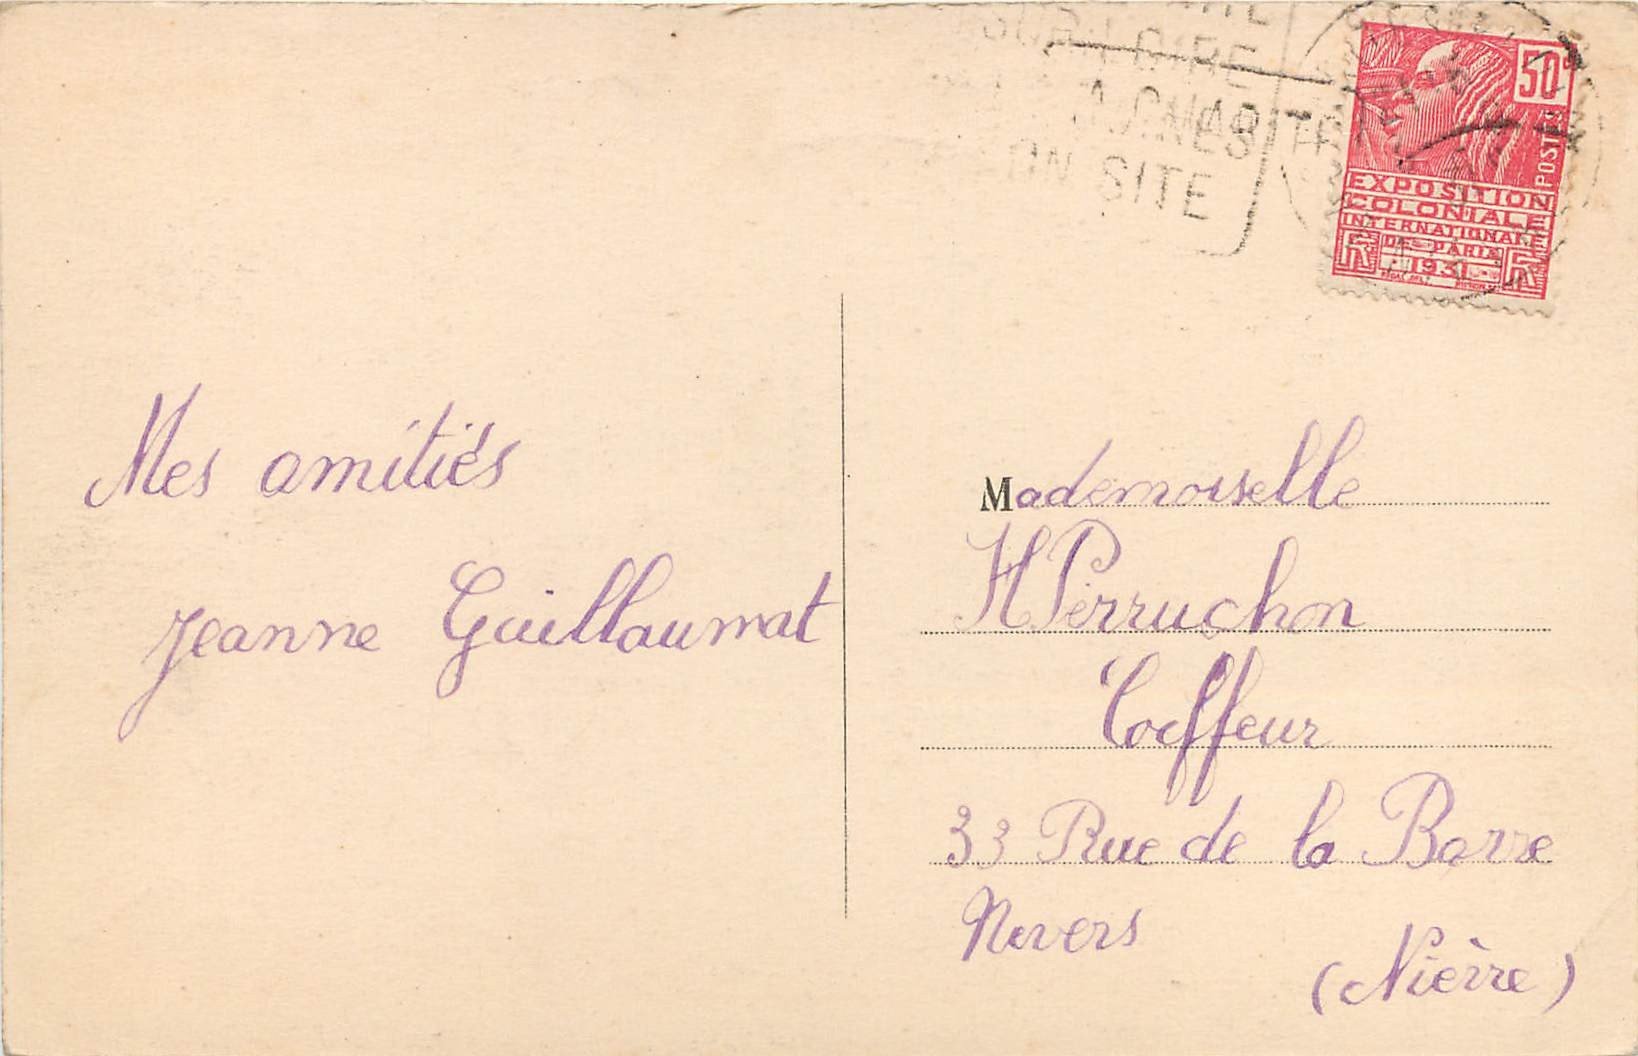 SUR LOIRE
SITE
50
POSTES
EXPOSITION
COLONIALE
INTERNATIONALE
DE PARIS
1931
Mes amitiés
Jeanne Guillaumat
Mademoiselle
H Perruchon
Coiffeur
33 Rue de la Barre
Nevers
(Nièvre)